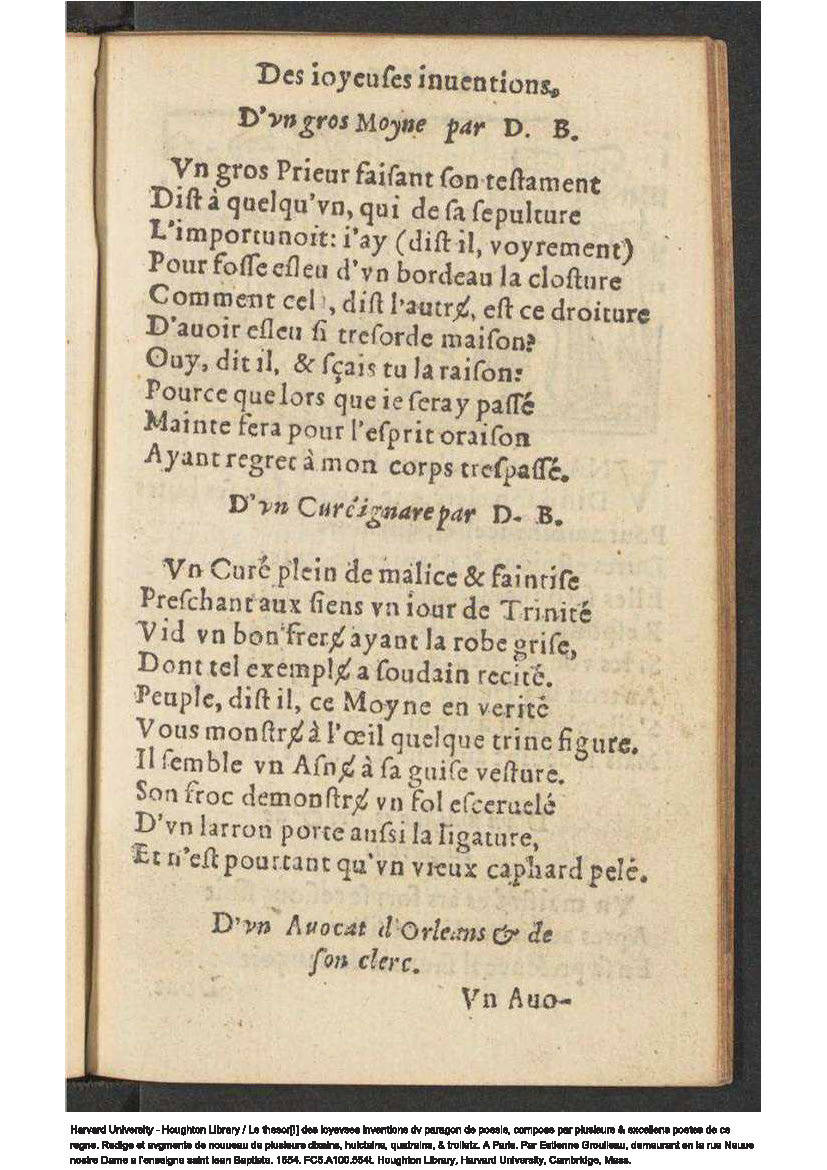 Des ioyeuſes inuentions,
D'vn gros Moyne par D. B.
Vn gros Prieur faiſant ſon teſtament
Diſt à quelqu'vn, qui de ſa ſepulture
L'importunoit: i'ay (diſt il, voyrement)
Pour foſſe eſleu d'vn bordeau la cloſture
Comment cel, diſt l'autrɇ, eſt ce droiture
D'auoir eſleu ſi treſorde maiſon?
Ouy, dit il, & ſçais tu la raiſon?
Pource que lors que ie ſeray paſſé
Mainte fera pour l'eſprit oraiſon
Ayant regret à mon corps treſpaſſé.
D'vn Curé ignare par D. B.
Vn Curé plein de malice & faintiſe
Preſchant aux ſiens vn iour de Trinité
Vid vn bon frerɇ ayant la robe griſe,
Dont tel exemplɇ a ſoudain recité.
Peuple, diſt il, ce Moyne en verité
Vous monſtrɇ à l'œil quelque trine figure.
Il ſemble vn Aſnɇ à ſa guiſe veſture.
Son froc demonſtrɇ vn fol eſceruelé
D'vn larron porte auſsi la ligature,
Et n'eſt pourtant qu'vn vieux caphard pelé.
D'vn Auocat d'Orleans & de
ſon clerc.
Vn Auo-
Harvard University - Houghton Library / Le thesor[i] des ioyevses inventions dv paragon de poesie, compose par plusieurs & excellens poetes de ce
regne. Redige et avgmente de nouueau de plusieurs dixains, huictains, quatrains, & trolletz. A Paris. Par Estienne Groulleau, demeurant en la rue Neuue
nostre Dame a l'enseigne saint Iean Baptiste. 1554. FC5.A100.554t. Houghton Library, Harvard University, Cambridge, Mass.